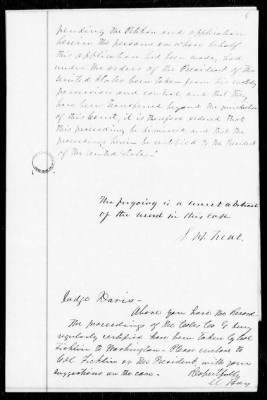 pending the Petition and application
herein the persons on whose behalf
this application had been made, had
under the orders of the President of the
United States been taken from his custody
possession and control and that they
have been transferred beyond the jurisdiction
of this Court, it is therefore ordered that
this proceeding be dismissed and that the
proceedings herein be certified to the President
of the United States"
The foregoing is a correct abstract
of the record in this case
Judge Davis—
Above you have the Record
The proceedings of the Coles Co
regularly certified have been taken by Col
Ficklin to Washington— Please enclose to
Col Ficklin or the President, with your
suggestions on the case—
Respectfully